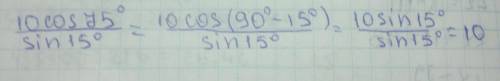 10cos75°/sin15° = 10cos(90°-15°)/sin15° = 10sin15°/sin15° = 10